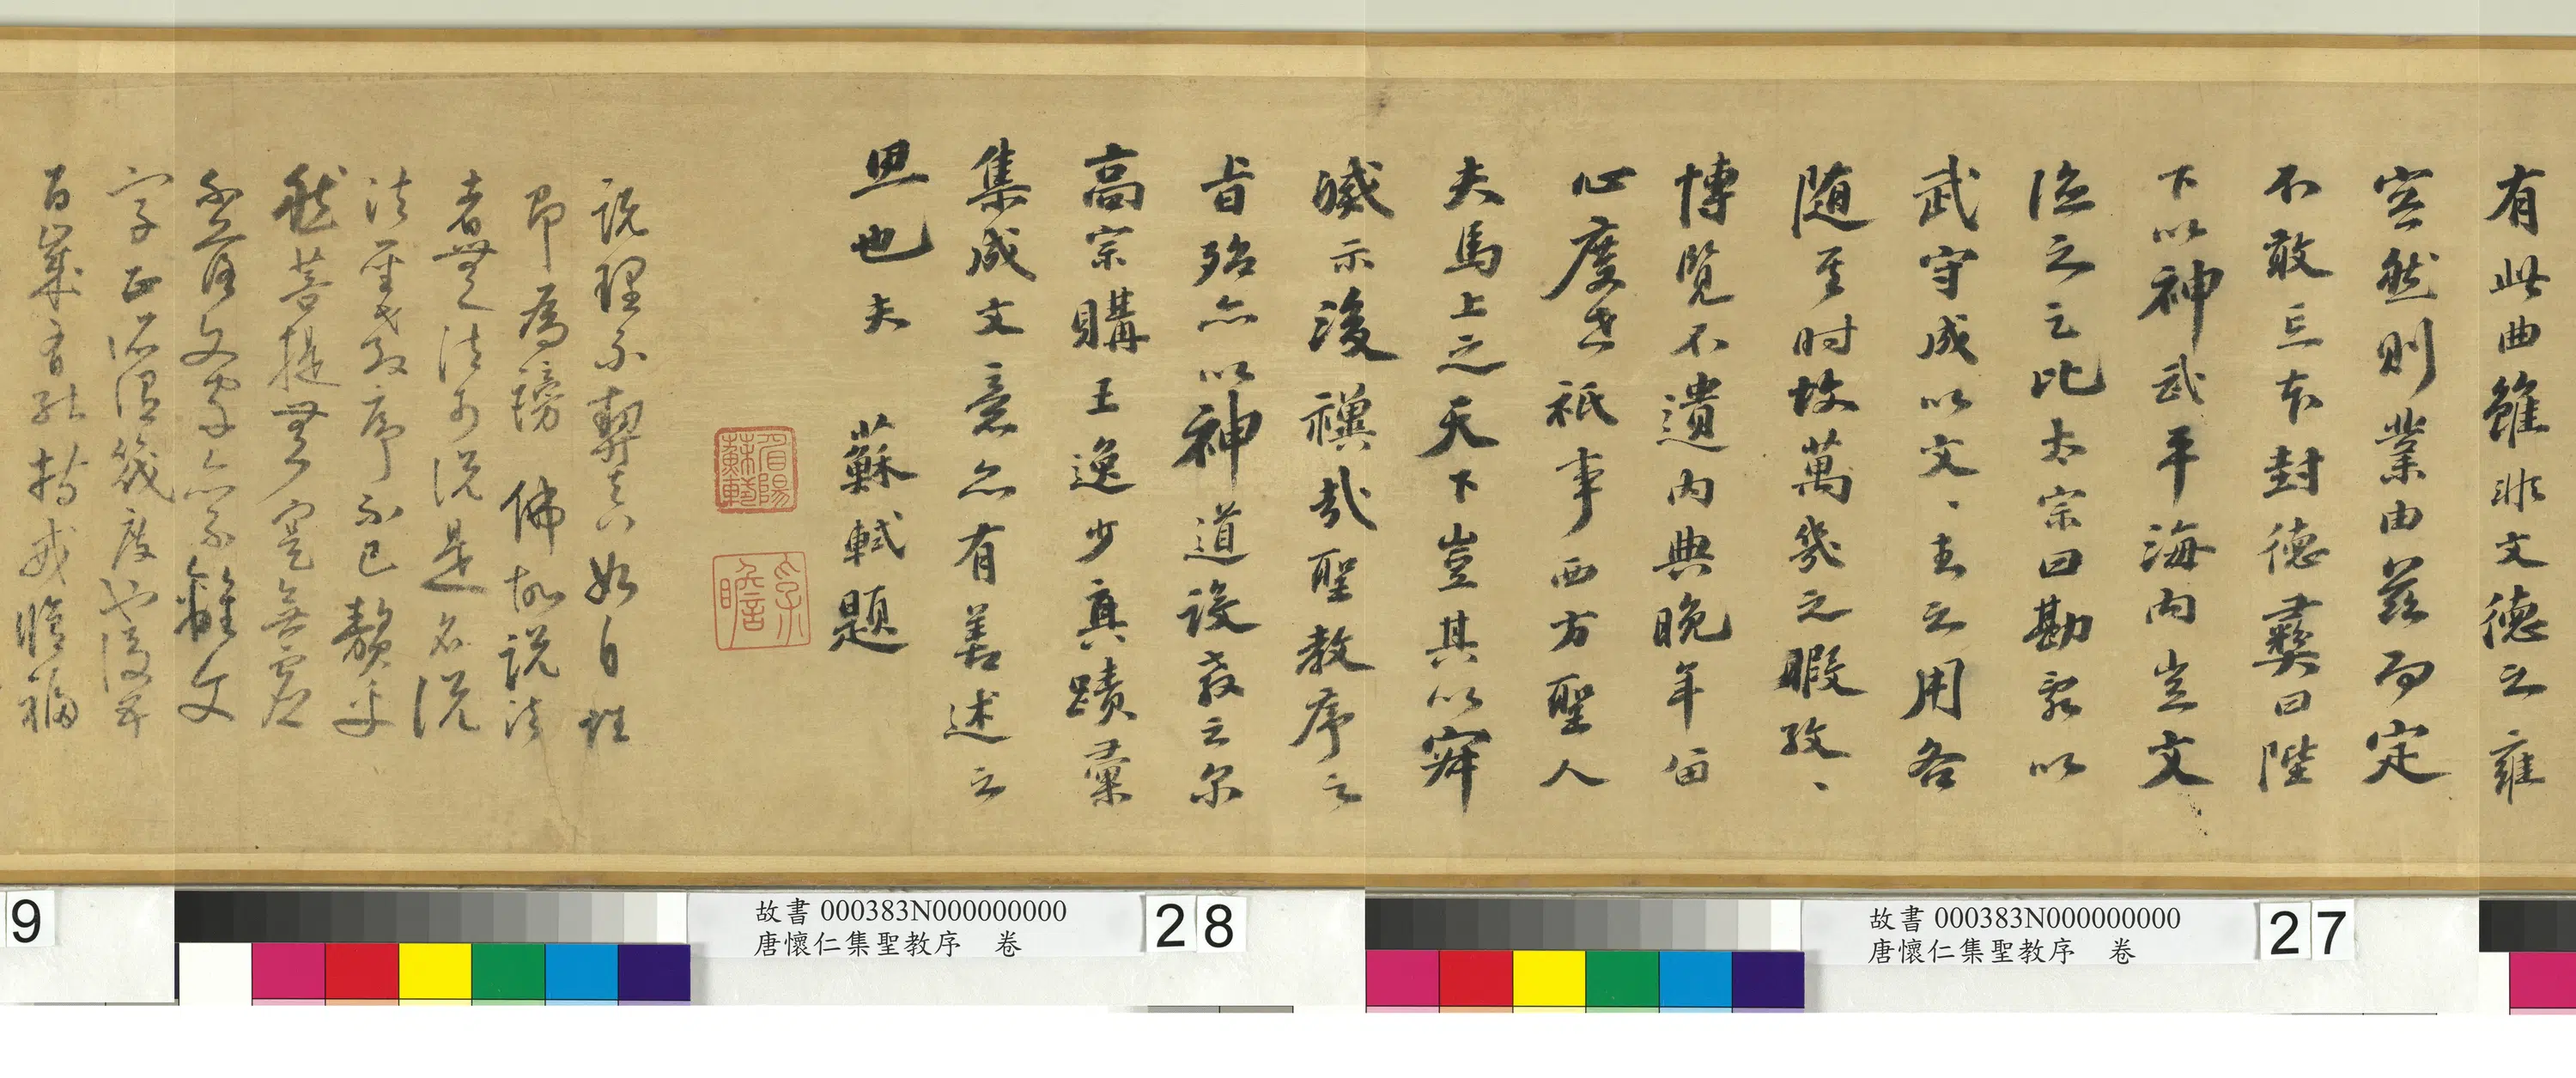 有此曲雖非文德之雍
容然則業由茲而定
不敢忘本封德彝曰陛
下以神武平海內豈文
德之足比太宗曰勘亂以
武守成以文、武之用各
隨其时故萬幾之暇孜、
博覽不遺內典晚年留
心度世祇事西方聖人
夫馬上之天下豈其以
示後禩哉聖教序之
旨殆亦以神道設教云尔
高宗購王逸少真蹟彙
集成文意亦有善述之
思也夫 蘇軾題
眉陽蘇軾
子瞻
說理不契真如自性
即為謗佛故說法
者無法可說是名說
法聖教序不已贅乎
然菩提無實無虛
不落文字亦不離文
字
百 持戒修福
故書000383N000000000
唐懷仁集聖教序 卷
28
故書000383N000000000
唐懷仁集聖教序 卷
27
9